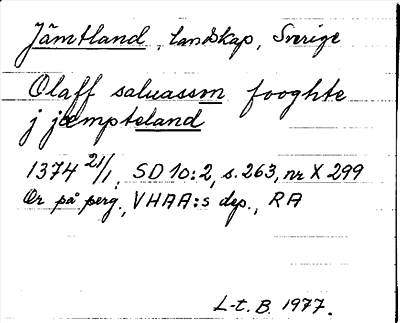 Jämtland, landskap, Sverige
Olaff saluassøn fooghte
j jæmpteland
1374 21/1, SD 10:2, s. 263, nr X 299
Or på perg., VHAA:s dep., RA
L-t. B. 1977.